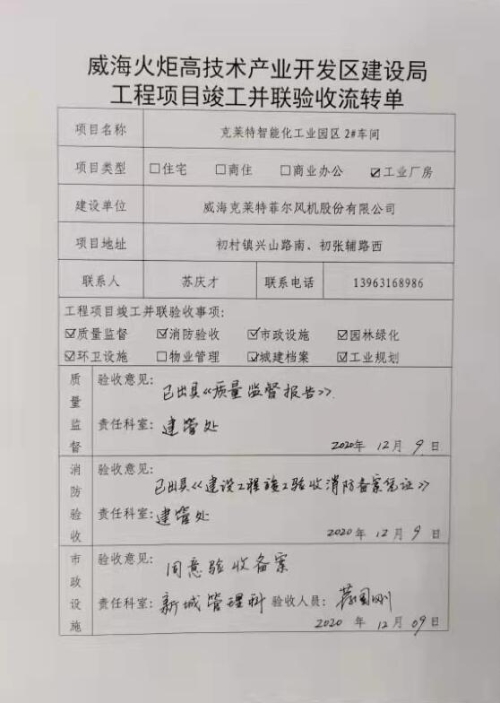 威海火炬高技术产业开发区建设局
工程项目竣工并联验收流转单
项目名称 克莱特智能化工业园区 2#车间
项目类型 □住宅 □商住 □商业办公 ☑工业厂房
建设单位 威海克莱特菲尔风机股份有限公司
项目地址 初村镇兴山路南、初张辅路西
联系人 苏庆才 联系电话 13963168986
工程项目竣工并联验收事项:
☑质量监督 ☑消防验收 ☑市政设施 ☑园林绿化
☑环卫设施 □物业管理 ☑城建档案 ☑工业规划
质量监督 验收意见:
已出具《质量监督报告》.
责任科室: 建管处
2020年 12月 9日
消防验收 验收意见:
已出具《建设工程竣工验收消防备案凭证》
责任科室: 建管处
2020年 12月 9日
市政设施 验收意见:
同意验收备案
责任科室: 新城管理科 验收人员:
2020年 12月 09日